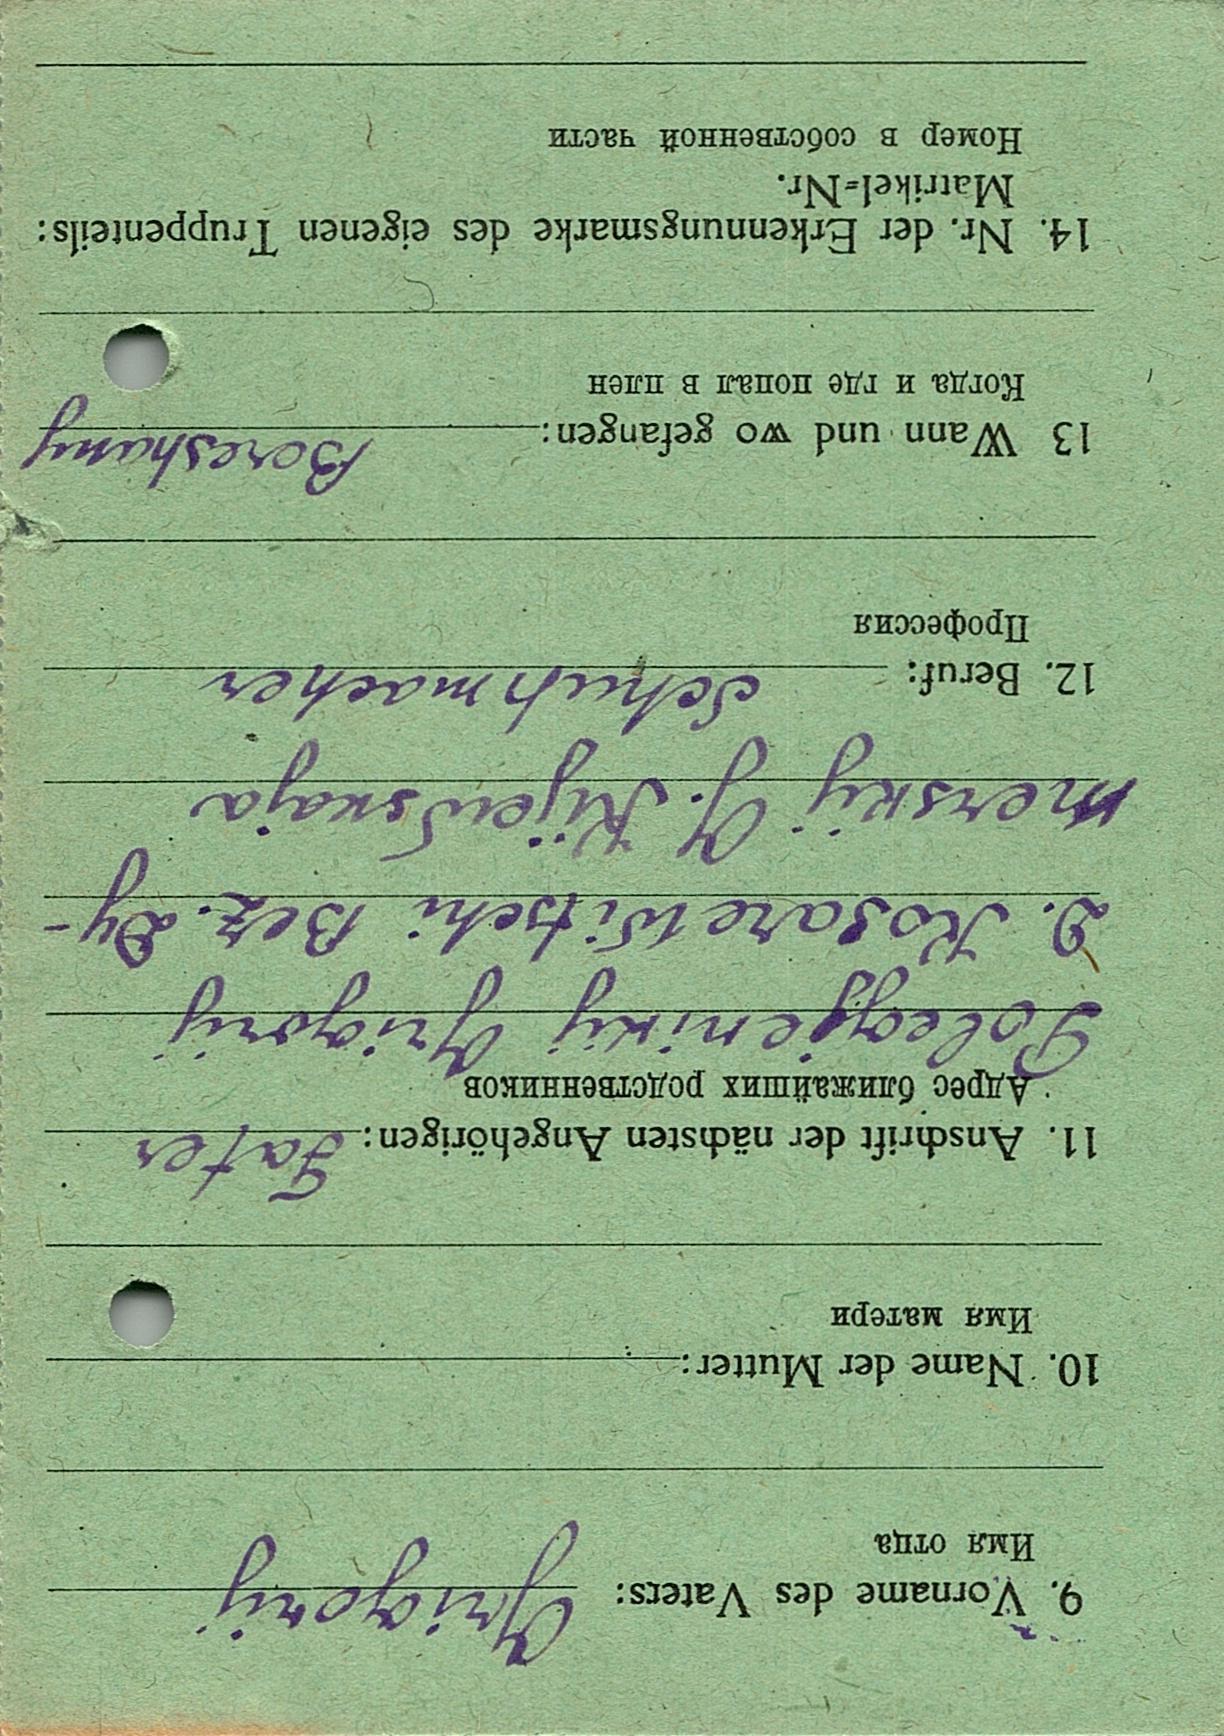 9. Vorname des Vaters: Grigorij
Имя отца
10. Name der Mutter:
Имя матери
11. Anschrift der nächsten Angehörigen: Fater
Адрес ближайших родственников
Grigorij
D. Kosarewitschi Bez. Dy-
merskij G. Kijewskaja
12. Beruf: Schuhmacher
Профессия
13 Wann und wo gefangen: Boreshany
Когда и где попал в плен
14. Nr. der Erkennungsmarke des eigenen Truppenteils:
Matrikel=Nr.
Номер в собственной части